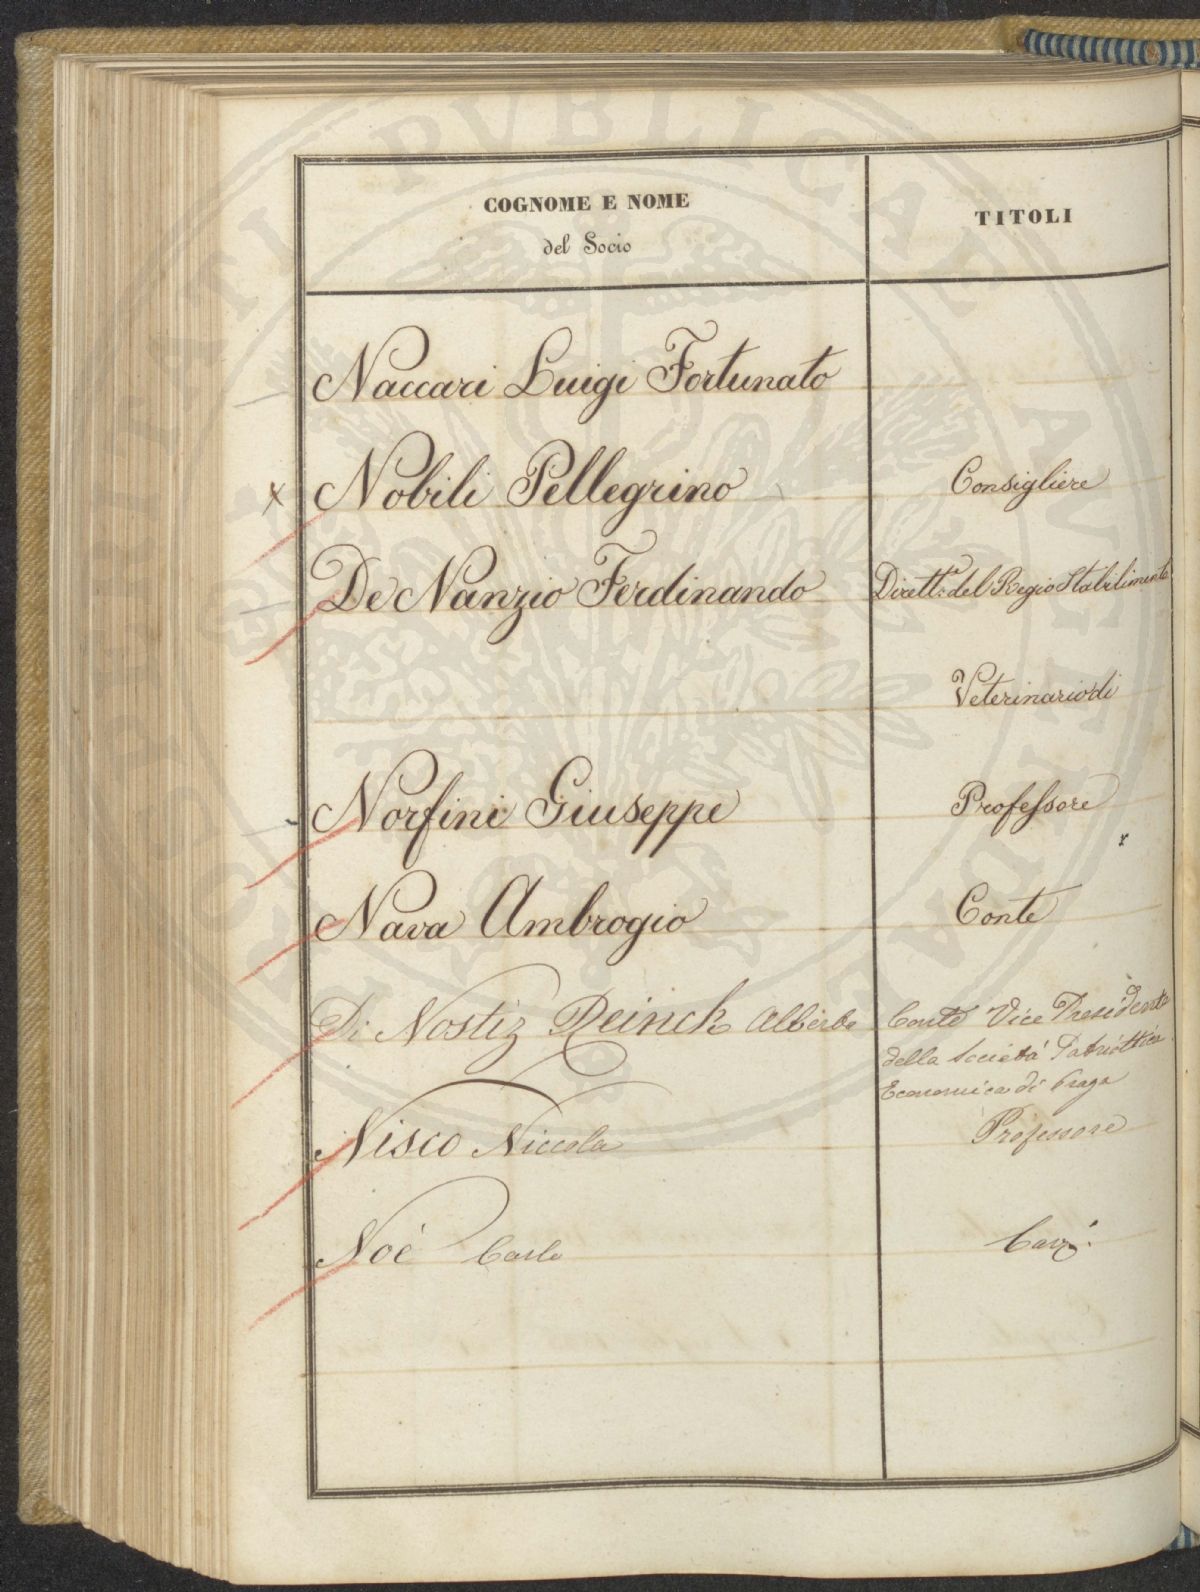 COGNOME E NOME
del Socio
TITOLI
Naccari Luigi Fortunato
x Nobili Pellegrino Consigliere
De Nanzio Ferdinando Dirett.e del Regio Stabilimento
Veterinario di
Norfini Giuseppe Professore
x
Nava Ambrogio Conte
Di Nostiz Reinck Alberto Conte Vice Presidente
della Società Patriottica
Economica di Praga
Nisco Niccola Professore
Noè Carlo